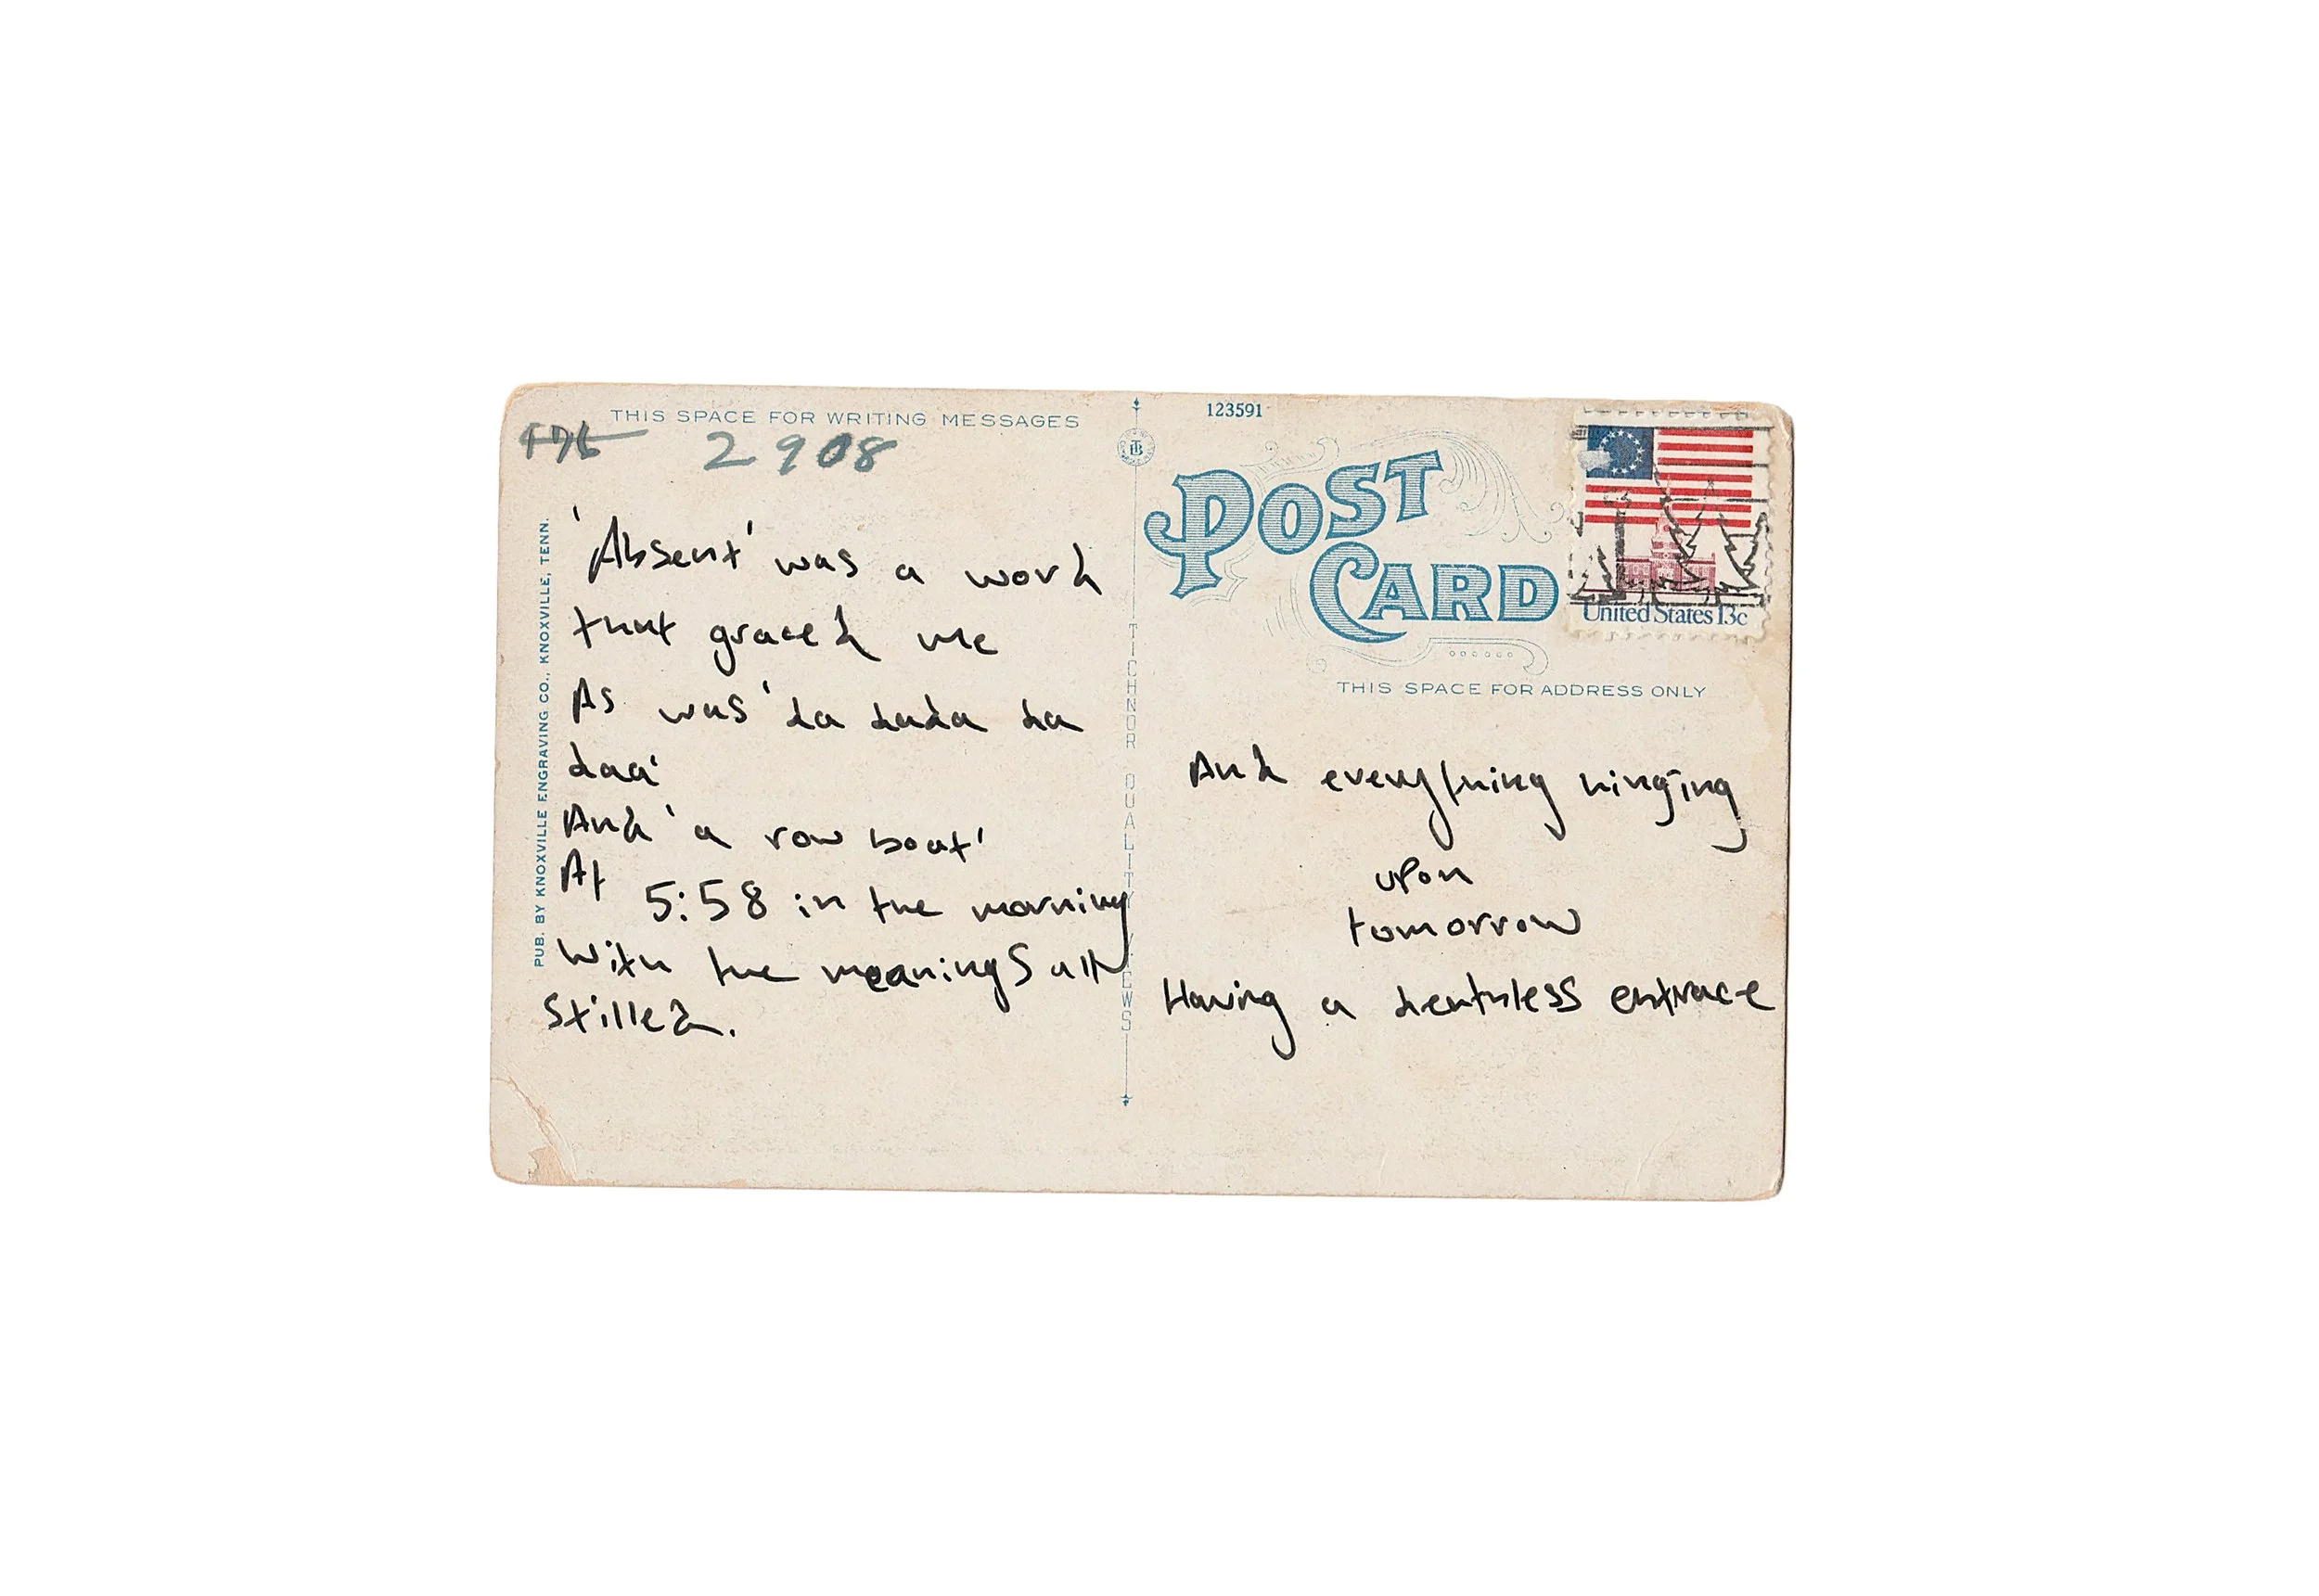 THIS SPACE FOR WRITING MESSAGES
2908
'Absent' was a word
that graced me
As was 'da dada da
daa'
And 'a row boat'
At 5:58 in the morning
With the meanings all
Stilled.
PUB. BY KNOXVILLE ENGRAVING CO., KNOXVILLE, TENN.
TICHNOR QUALITY VIEWS
123591
POST
CARD
United States 13c
THIS SPACE FOR ADDRESS ONLY
And everything hinging
upon
tomorrow
Having a deathless entrace